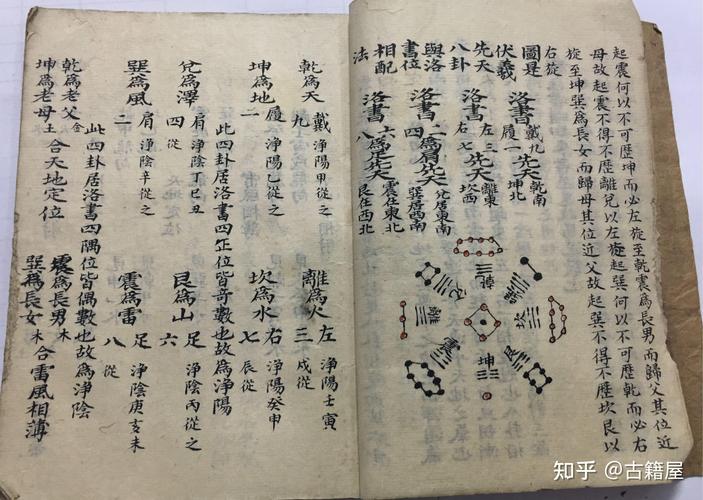 起震何以不可歷坤而必左旋至乾震為長男而歸父其位近
母故起震不得不歷離兌以左旋起巽何以不可歷乾而必右
旋至坤巽為長女而歸母其位近父故起巽不得不歷坎艮以
右旋
圖是
伏義
先天
八卦
與洛
書位
相配
法
洛書戴九履一先天乾南坤北
洛書左三右七先天離東坎西
洛書二四為肩先天兌居東南巽居西南
洛書六八為足先天震在東北艮在西北
乾
兌
坎
離
震
坤
艮
乾為天九戴淨陽甲從之
離為火左三淨陽壬寅戌從
坤為地履淨陽乙從之
坎為水右七淨陽癸申辰從
此四卦居洛書四正位皆奇數也故為淨陽
兌為澤四肩淨陰丁巳丑從
艮為山六足淨陰丙從之
巽為風二肩淨陰辛從之
震為雷八足淨陰庚亥未從
此四卦居洛書四隅位皆偶數也故為淨陰
乾為老父金
坤為老母土合天地定位
震為長男木
巽為長女木合雷風相薄
知乎 @古籍屋